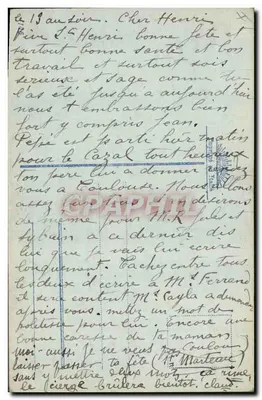 le 13 au soir. Cher Henri
Vive St Henri bonne fête et
surtout bonne santé et bon
travail et surtout sois
serieux et sage comme tu
l'as été jusqu'a aujourd'hui
nous t'embrassons bien
fort y compris
Pépé est parti hier matin
pour le Cazal tout heureux
ton père lui a donner rendez
vous a Toulouse. Nous
assez
de même pour M. R. Jules et
Sylvain a ce dernier dis
lui que je vais lui ecrire
longuement. Tachez entre tous
les deux d'ecrire à Mr Ferrand
il sera content Mr Cayla a demandé
après vous. mettez un mot de
politesse pour lui. Encore une
bonne caresse de ta maman
moi aussi je ne veux
laisser passer ta fête
sans y mettre mon mot. ca rime
le cierge brûlera bientot.